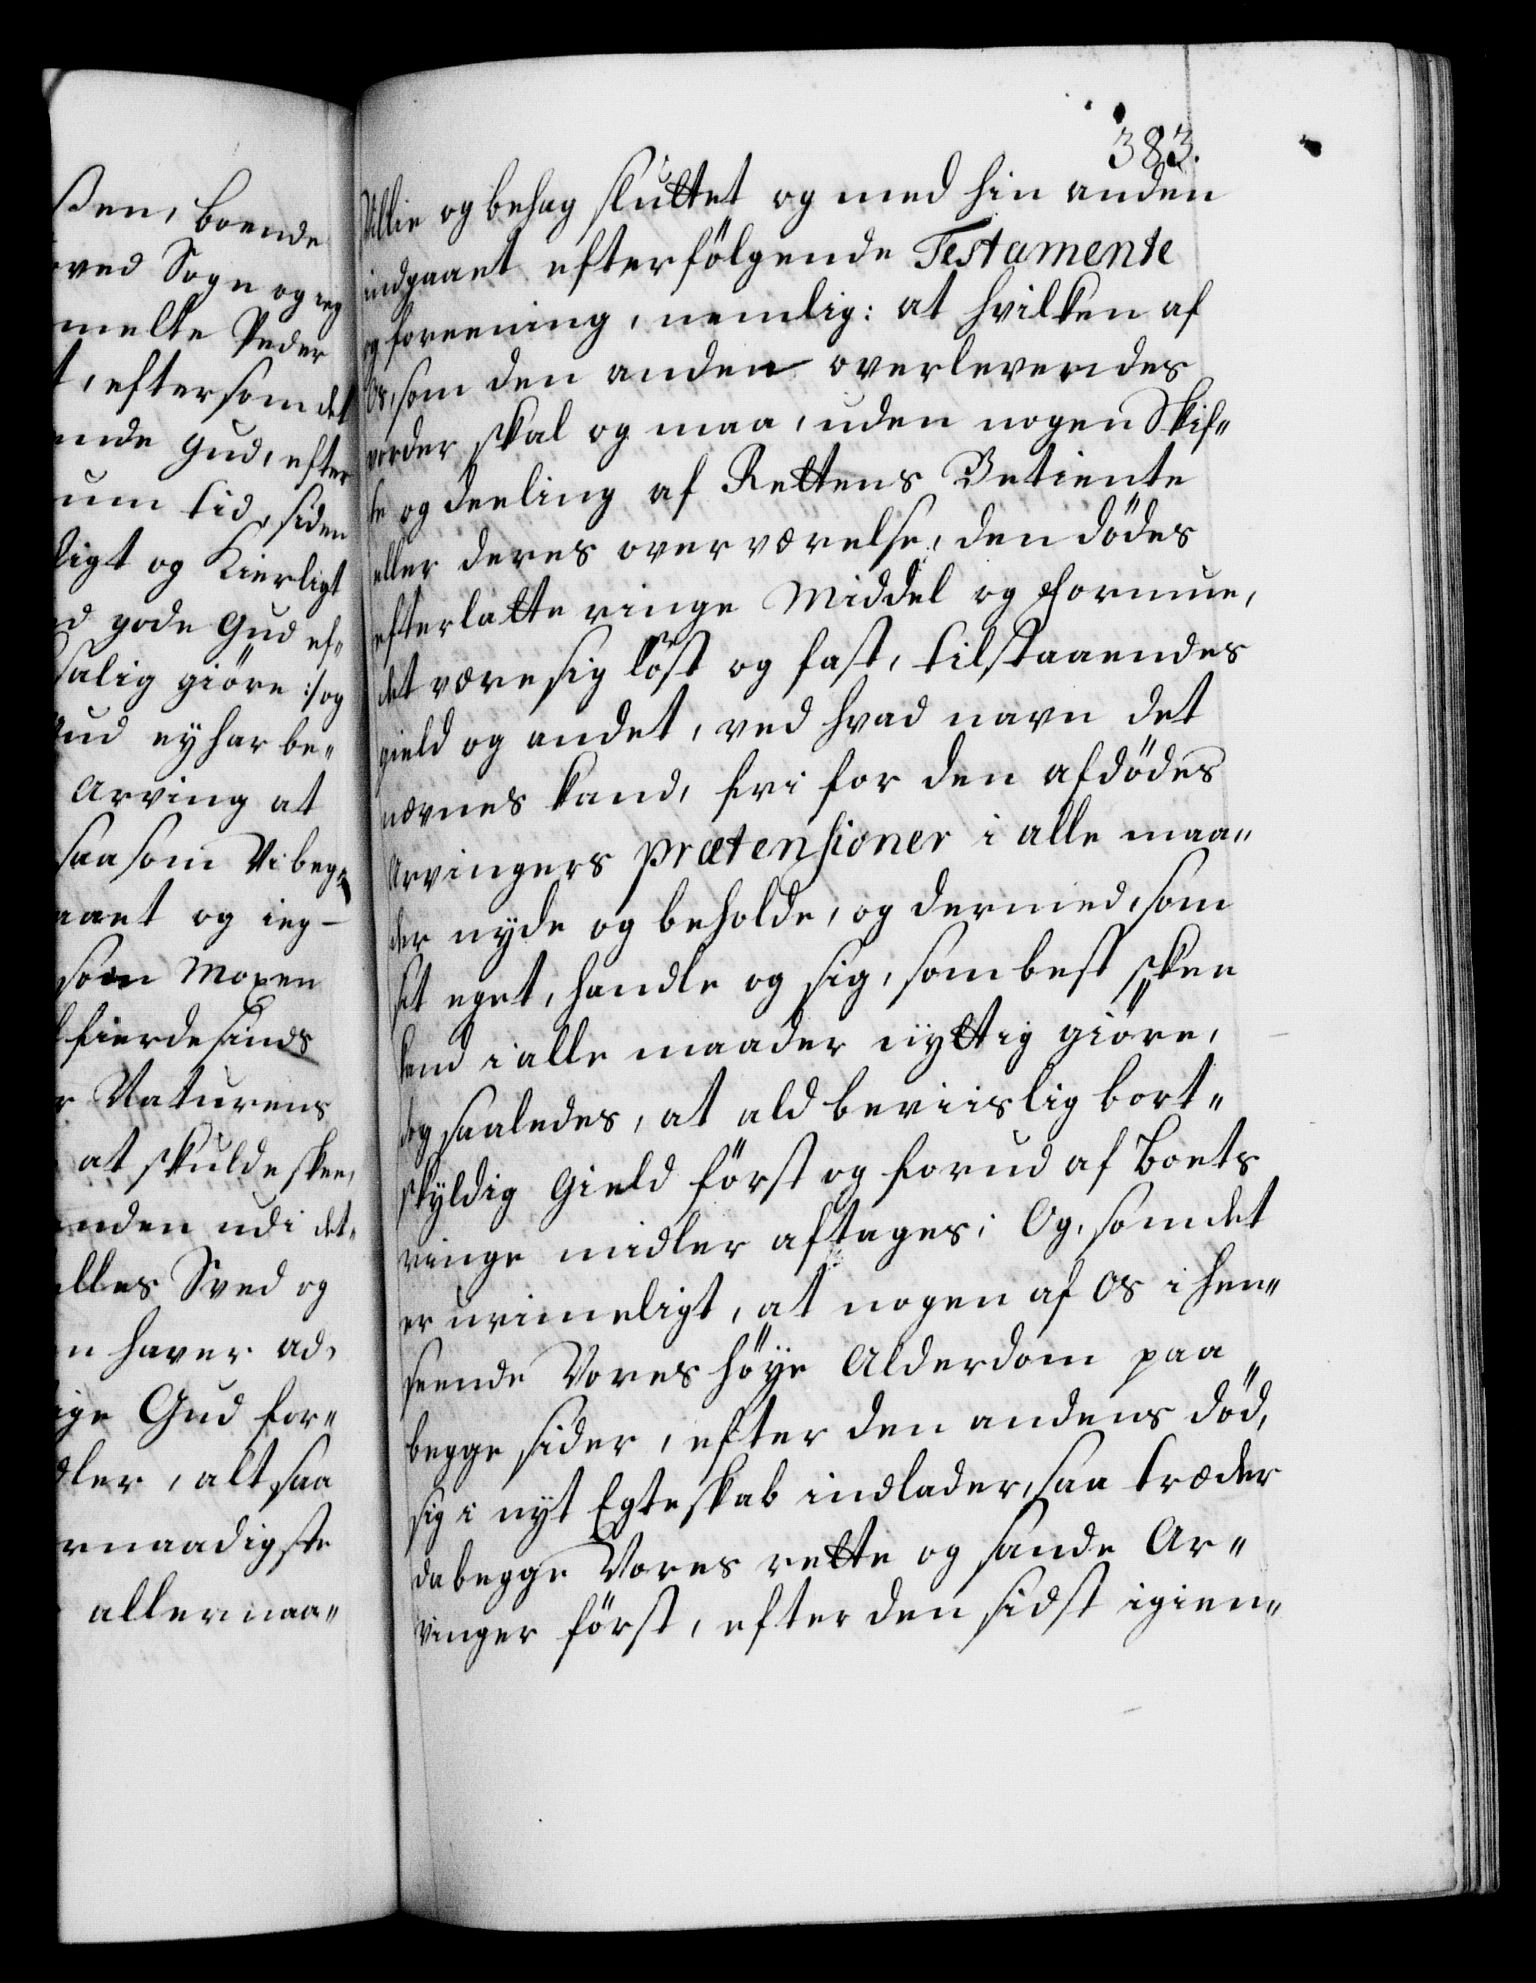 ßen, boende
oved Sogn og ieg
melte Peder
t, eftersom det
ende Gud, efter
um tid, siden
ligt og Kierligt
d gode Gud ef„
salig giöre :/ og
Gud ey har be„
Arving at
saasom Vi beg„
aaet og ieg
som Moxen
fierdesinds
r Naturens
at skulde skee,
anden udi det„
elles Sved og
n haver ad„
ige Gud for„
dler, alt saa
ernaadigste
allernaa„
383.
Villie og behag sluttet og med hin anden
indgaaet efterfölgende Testamente
og foreening, nemlig: at hvilken af
Os, som den anden overlevendes
vorder skal og maa, uden nogen Skif„
te og deeling af Rettens Betiente
eller deres overværelse, den dödes
efterlatte ringe Middel og Formue,
det være sig löst og fast, tilstaaendes
gield og andet, ved hvad navn det
nævnes kand, fri for den afdödes
Arvingers Prætensioner i alle maa„
der nyde og beholde, og dermed, som
sit eget, handle og sig, som best skee
kand i alle maader nyttig giöre,
dog saaledes, at ald beviislig bort„
skyldig Gield först og forud af Boets
ringe midler aftages; Og, som det
er urimeligt, at nogen af Os i hen„
seende Vores höye Alderdom paa
begge sider, efter den andens död,
sig i nyt Egteskab indlader, saa træder
da begge Vores rette og sande Ar„
vinger först, efter den sidst igien„